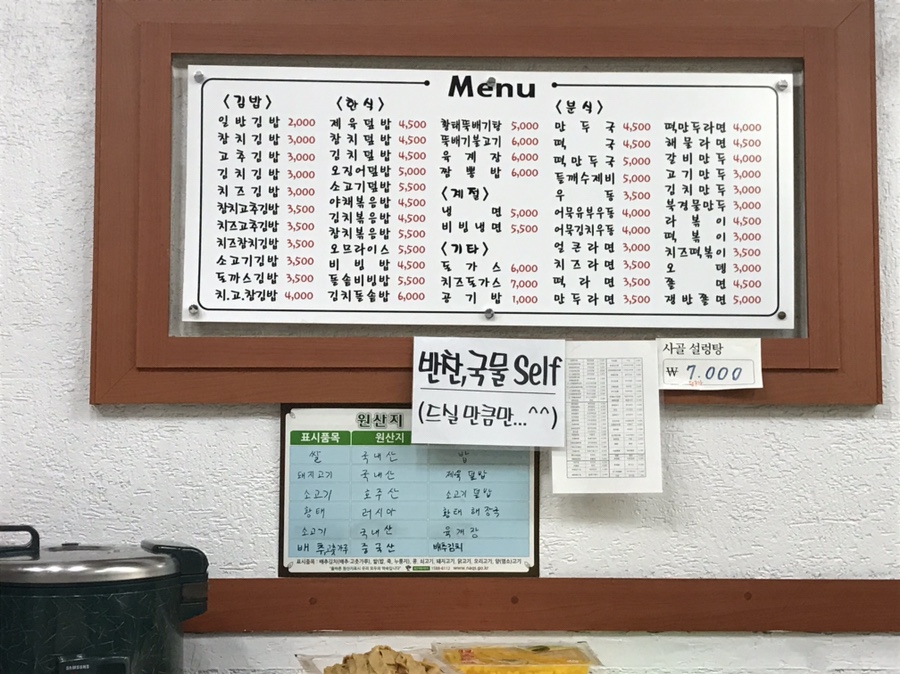 Menu
〈김밥〉
일반김밥 2,000
참치김밥 3,000
고추김밥 3,000
김치김밥 3,000
치즈김밥 3,000
참치고추김밥 3,500
치즈고추김밥 3,500
치즈참치김밥 3,500
소고기김밥 3,500
돈까스김밥 3,500
치.고.참김밥 4,000
〈한식〉
제육덮밥 4,500
참치덮밥 4,500
김치덮밥 4,500
오징어덮밥 5,000
소고기덮밥 5,500
야채볶음밥 4,500
김치볶음밥 4,500
참치볶음밥 5,500
오므라이스 5,500
비빔밥 4,500
돌솥비빔밥 5,500
김치돌솥밥 6,000
황태뚝배기탕 5,000
뚝배기불고기 6,000
육계장 6,000
짬뽕밥 6,000
〈계절〉
냉면 5,000
비빔냉면 5,500
〈기타〉
돈가스 6,000
치즈돈가스 7,000
공기밥 1,000
〈분식〉
만두국 4,500
떡국 4,500
떡만두국 5,000
들깨수제비 5,000
우동 3,500
어묵유부우동 4,000
어묵김치우동 4,000
얼큰라면 3,000
치즈라면 3,500
떡라면 3,500
만두라면 3,500
떡만두라면 4,000
해물라면 4,500
갈비만두 4,000
고기만두 3,000
김치만두 3,000
북경물만두 3,000
라볶이 4,500
떡볶이 3,000
치즈떡볶이 3,500
오뎅 3,000
쫄면 4,500
쟁반쫄면 5,000
반찬,국물 Self
(드실 만큼만...^^)
사골 설렁탕
₩ 7.000
원산지
표시품목 원산지
쌀 국내산 밥
돼지고기 국내산 제육덮밥
소고기 호주산 소고기덮밥
황태 러시아 황태 해장국
소고기 국내산 육계장
배추,고춧가루 중국산 배추김치
표시품목 : 배추김치(배추·고춧가루), 쌀(밥, 죽, 누룽지), 콩, 쇠고기, 돼지고기, 닭고기, 오리고기, 양(염소)고기
www.naqs.go.kr
SAMSUNG